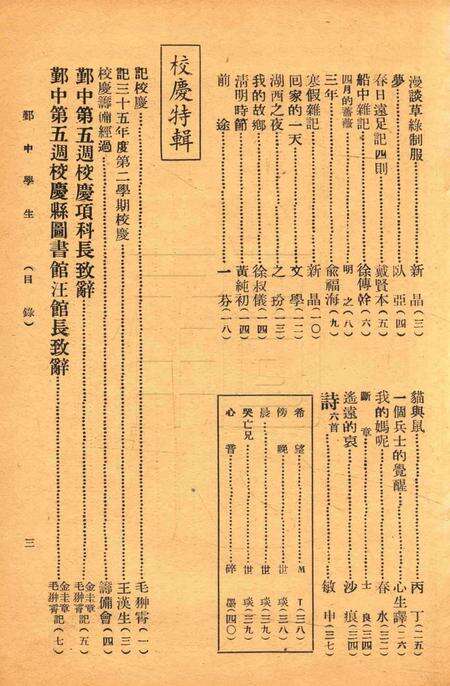 漫談草綠制服……新晶(三)
夢……以亞(四)
春日遠足記四則……戴賢本(五)
船中雜記……徐傳幹(六)
四月的薔薇……明之(八)
三年……俞福海(九)
寒假雜記……新晶(一〇)
囘家的一天……文學(一二)
湖西之夜……之玢(一三)
我的故鄉……徐叔儀(一四)
淸明時節……黃純初(一四)
前途……一芬(一八)
貓與鼠……丙丁(二五)
一個兵士的覺醒……心生譯(二六)
我的媽呢……春水(三二)
斷章……士良(三四)
遙遠的哀……沙痕(三四)
詩六首……敏中(三七)
希望……M T(三八)
傍晚……世琰(三八)
晨……世琰(三九)
哭亡兄……世琰(三九)
心音……碎墨(四〇)
校慶特輯
記校慶……毛翀霄(一)
記三十五年度第二學期校慶……王漢生(三)
校慶籌備經過……籌備會(四)
鄞中第五週校慶項科長致辭……金圭章 毛翀霄記(五)
鄞中第五週校慶縣圖書館汪館長致辭……金圭章 毛翀霄記(七)
鄞中學生(目錄) 三